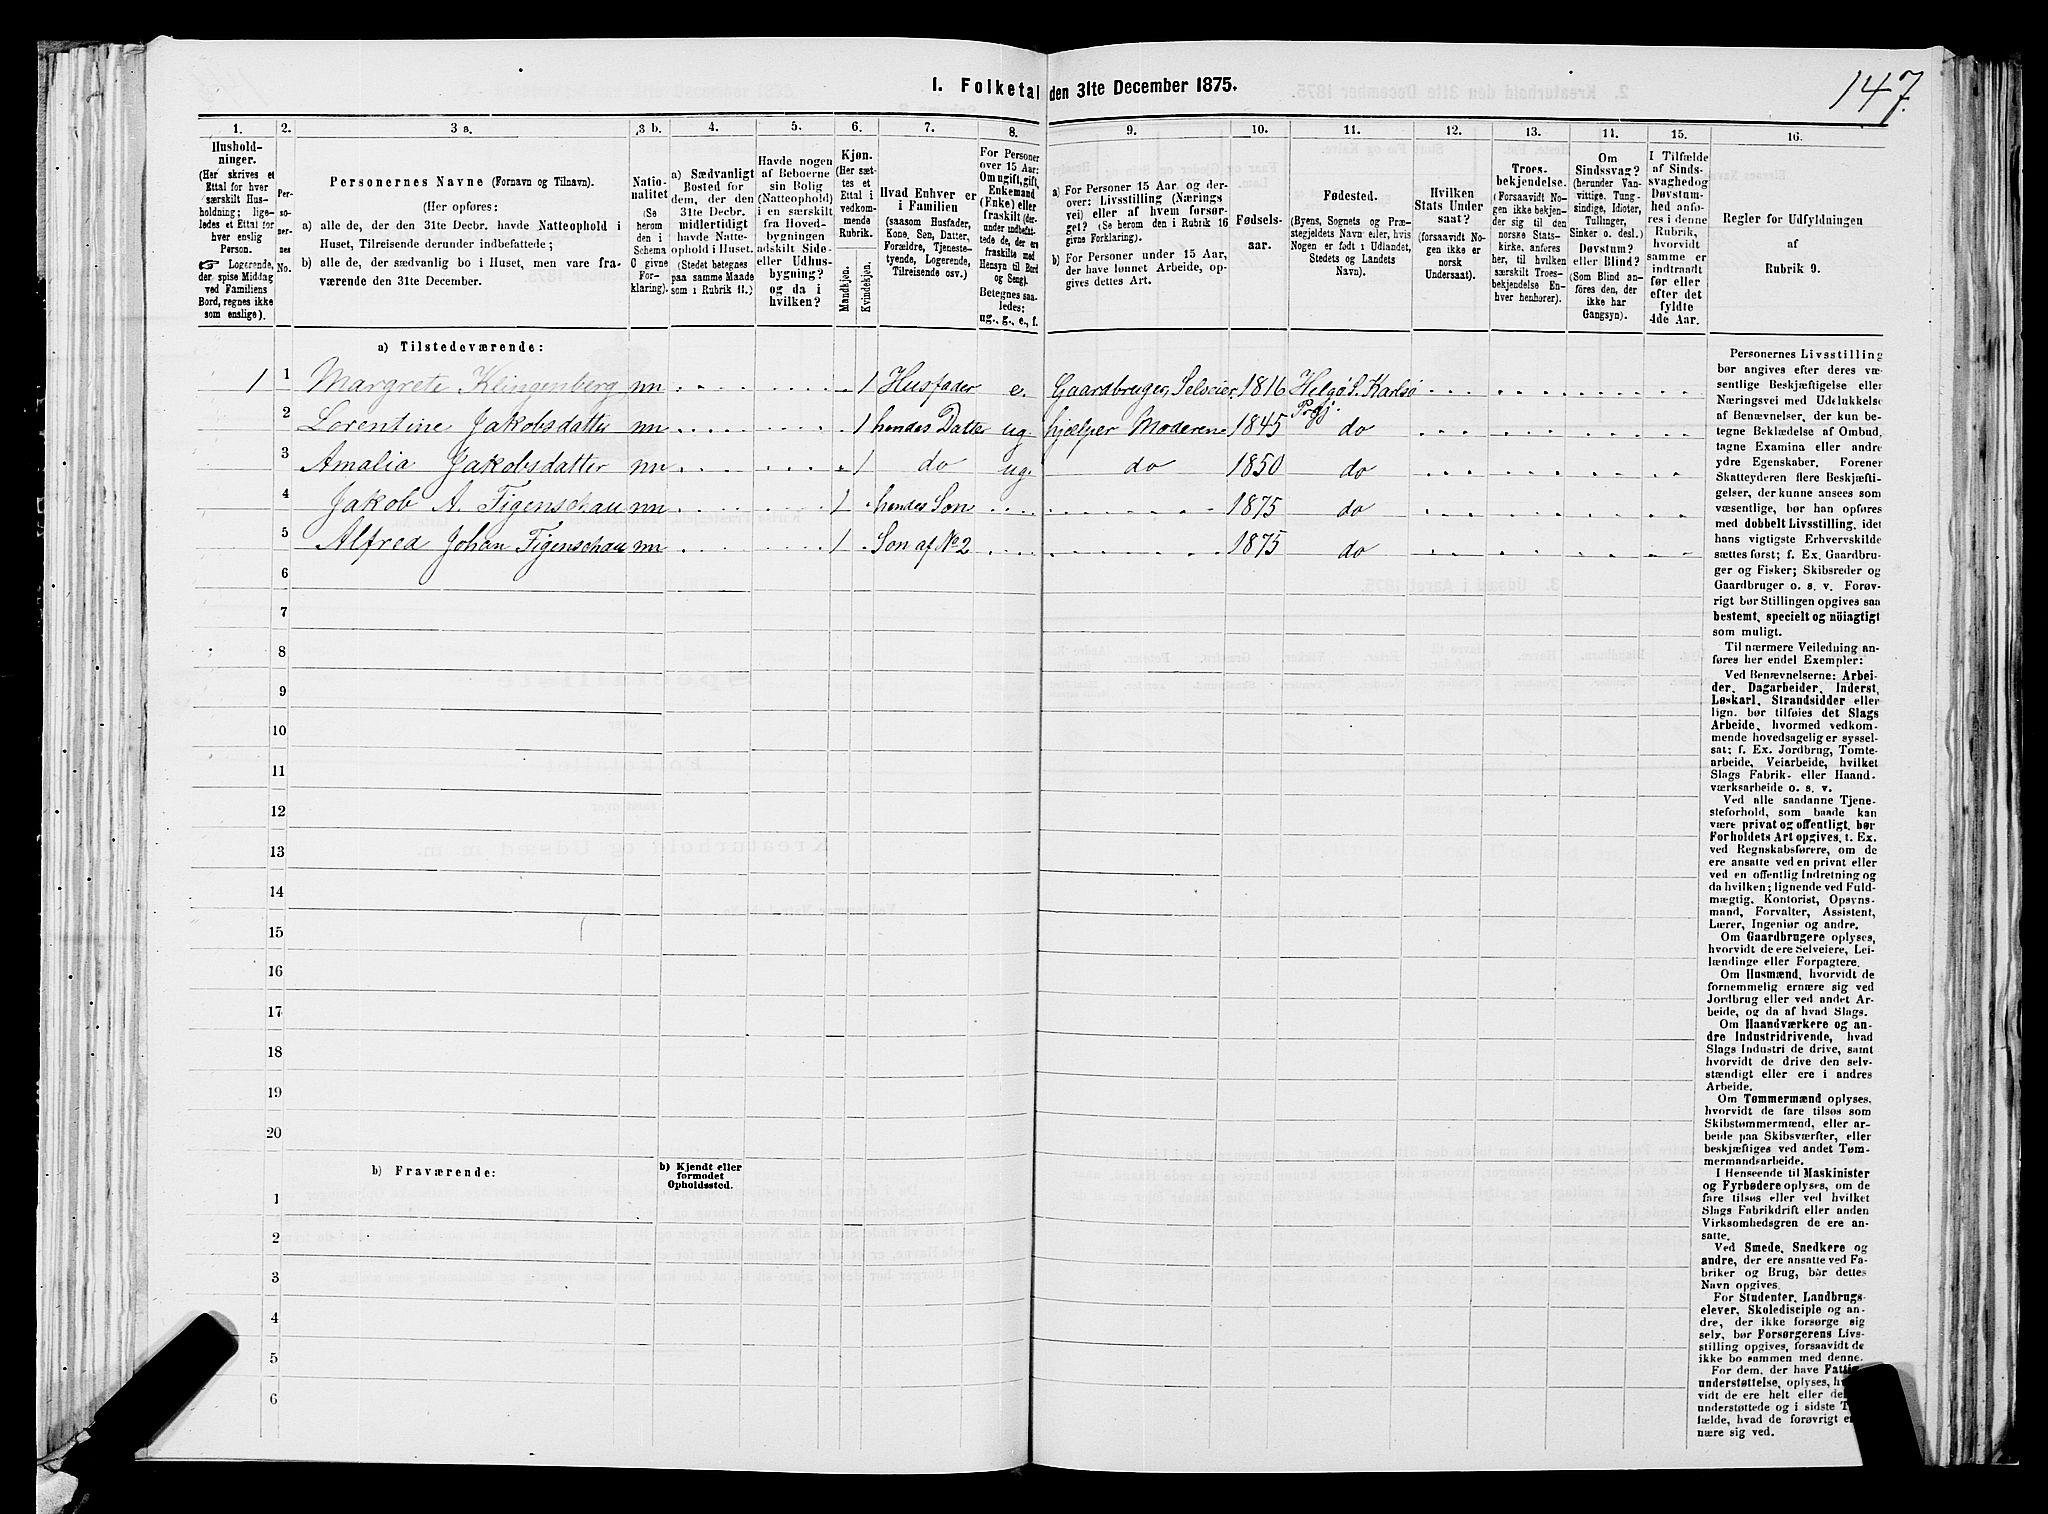 1. Folketal den 31te December 1875.
147
1.
Hushold-
ninger.
(Her skrives et
Ettal for hver
særskilt Hus-
holdning; lige-
ledes et Ettal for
hver enslig
Person.
☞ Logerende,
der spise Middag
ved Familiens
Bord, regnes ikke
som enslige).
2.
Per-
so-
ner-
nes
No.
3 a.
Personernes Navne (Fornavn og Tilnavn).
(Her opføres:
a) alle de, der den 31te Decbr. havde Natteophold i
Huset, Tilreisende derunder indbefattede;
b) alle de, der sædvanlig bo i Huset, men vare fra-
værende den 31te December.
3 b.
Natio-
nalitet
(Se
herom
den i
Schema
C givne
For-
klaring).
4.
a) Sædvanligt
Bosted for
dem, der den
31te Decbr.
midlertidigt
havde Natte-
ophold i Huset.
(Stedet betegnes
paa samme Maade
som i Rubrik 11.)
5.
Havde nogen
af Beboerne
sin Bolig
(Natteophold)
i en særskilt
fra Hoved-
bygningen
adskilt Side-
eller Udhus-
bygning?
og da i
hvilken?
6.
Kjøn.
(Her sæt-
tes et
Ettal i
vedkom-
mende
Rubrik.
Mandkjøn.
Kvindekjøn.
7.
Hvad Enhver er
i Familien
(saasom Husfader,
Kone, Søn, Datter,
Forældre, Tjeneste-
tyende, Logerende,
Tilreisende osv.)
8.
For Personer
over 15 Aar:
Om ugift, gift,
Enkemand
(Enke) eller
fraskilt (der-
under indbefat-
tede de, der ere
fraskilte med
Hensyn til Bord
og Seng).
Betegnes saa-
ledes:
ug., g., e., f.
9.
a) For Personer 15 Aar og der-
over: Livsstilling (Nærings-
vei) eller af hvem forsør-
get? (Se herom den i Rubrik 16
givne Forklaring).
b) For Personer under 15 Aar,
der have lønnet Arbeide, op-
gives dettes Art.
10.
Fødsels-
aar.
11.
Fødested.
(Byens, Sognets og Præ-
stegjeldets Navn eller, hvis
Nogen er født i Udlandet,
Stedets og Landets
Navn).
12.
Hvilken
Stats Under
saat?
(forsaavidt No-
gen ikke er
norsk
Undersaat).
13.
Troes-
bekjendelse.
(Forsaavidt No-
gen ikke bekjen-
der sig til den
norske Stats-
kirke, anføres
her, til hvilken
særskilt Troes-
bekjendelse En-
hver henhører).
14.
Om
Sindssvag?
(herunder Van-
vittige, Tung-
sindige, Idioter,
Tullinger,
Sinker o. desl.)
Døvstum?
eller Blind?
(Som Blind an-
føres den, der
ikke har
Gangsyn).
15.
I Tilfælde
af Sinds-
svaghed og
Døvstum-
hed anfø-
res i denne
Rubrik,
hvorvidt
samme er
indtraadt
før eller
efter det
fyldte
4de Aar.
16.
Regler for Udfyldningen
af
Rubrik 9.
a) Tilstedeværende:
1 1 Margrete Klingenberg nn 1 Husfader e. Gaardbruger, Selveier 1816 Helgø S. Karlsø Prgj.
2 Lorentine Jakobsdatter nn 1 hendes Datter ug hjælper Moderen 1845 do
3 Amalia Jakobsdatter nn 1 do ug. do 1850 do
4 Jakob A. Figenschau nn 1 hendes Søn 1875 do
5 Alfred Johan Figenschau nn 1 Søn af No 2 1875 do
6
7
8
9
10
11
12
13
14
15
16
17
18
19
20
b) Fraværende:
b) Kjendt eller
formodet
Opholdssted.
1
2
3
4
5
6
Personernes Livsstilling
bør angives efter deres væ-
sentlige Beskjæftigelse eller
Næringsvei med Udelukkelse
af Benævnelser, der kun be-
tegne Beklædelse af Ombud,
tagne Examina eller andre
ydre Egenskaber. Forener
Skatteyderen flere Beskjæfti-
gelser, der kunne ansees som
væsentlige, bør han opføres
med dobbelt Livsstilling, idet
hans vigtigste Erhvervskilde
sættes først; f. Ex. Gaardbru-
ger og Fisker; Skibsreder og
Gaardbruger o. s. v. Forøv-
rigt bør Stillingen opgives saa
bestemt, specielt og nöiagtigt
som muligt.
Til nærmere Veiledning an-
føres her endel Exempler:
Ved Benævnelserne: Arbei-
der, Dagarbeider, Inderst,
Løskarl, Strandsidder eller
lign. bør tilføies det Slags
Arbeide, hvormed vedkom-
mende hovedsagelig er syssel-
sat; f. Ex. Jordbrug, Tomte-
arbeide, Veiarbeide, hvilket
Slags Fabrik- eller Haand-
værksarbeide o. s. v.
Ved alle saadanne Tjene-
steforhold, som baade kan
være privat og offentligt, bør
Forholdets Art opgives, t. Ex.
ved Regnskabsførere, om de
ere ansatte ved en privat eller
ved en offentlig Indretning og
da hvilken; lignende ved Fuld-
mægtig, Kontorist, Opsyns-
mand, Forvalter, Assistent,
Lærer, Ingeniør og andre.
Om Gaardbrugere oplyses,
hvorvidt de ere Selveiere, Lei-
lændinge eller Forpagtere.
Om Husmænd, hvorvidt de
fornemmelig ernære sig ved
Jordbrug eller ved andet Ar-
beide, og da af hvad Slags.
Om Haandværkere og an-
dre Industridrivende, hvad
Slags Industri de drive, samt
hvorvidt de drive den selv-
stændigt eller ere i andres
Arbeide.
Om Tømmermænd oplyses,
hvorvidt de fare tilsøs som
Skibstømmermænd, eller ar-
beide paa Skibsværfter, eller
beskjæftiges ved andet Tøm-
mermandsarbeide.
I Henseende til Maskinister
og Fyrbødere oplyses, om de
fare tilsøs eller ved hvilket
Slags Fabrikdrift eller anden
Virksomhedsgren de ere an-
satte.
Ved Smede, Snedkere og
andre, der ere ansatte ved Fa-
briker og Brug, bør dettes
Navn opgives.
For Studenter, Landbrugs-
elever, Skoledisciple og an-
dre, der ikke forsørge sig
selv, bør Forsørgerens Livs-
stilling opgives, forsaavidt de
ikke bo sammen med denne.
For dem, der have Fattig-
understøttelse, oplyses,
vidt de ere helt eller
understøttede og i sidste
fælde, hvad de forøvrigt
nære sig ved.